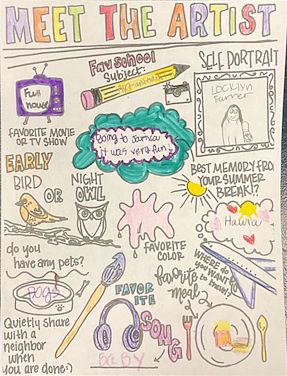 MEET THE ARTIST
Fav school
Subject:
SELF PORTRAIT
Full
house
FAVORITE MOVIE
OR TV SHOW
Going to
it was very fun!
EARLY
BIRD
OR
NIGHT
OWL
BEST MEMORY FRO
YOUR SUMMER
BREAK!?
do you
have any pets?
Dogs
FAVORITE
COLOR
WHERE DO
YOU WANT
to travel?
favorite
meal
Quietly share
with a
neighbor
when
you are done:)
FAVOR
ITE
SONG
BABY